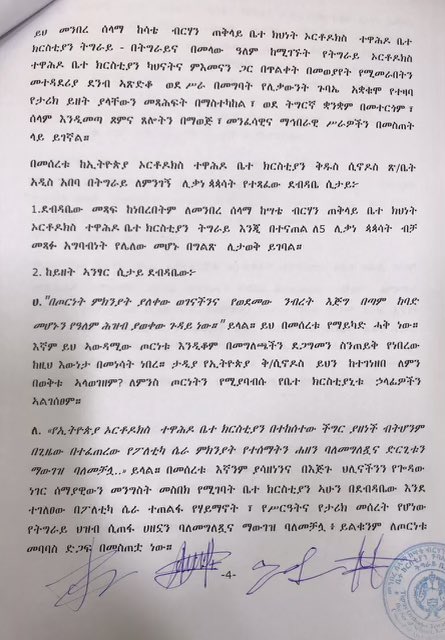 ይህ መንበረ ሰላማ ከሳቴ ብርሃን ጠቅላይ ቤተ ክህነት ኦርቶዶክስ ተዋሕዶ ቤተ
ክርስቲያን ትግራይ - በትግራይና በመላው ዓለም ከሚገኙት የትግራይ ኦርቶዶክስ
ተዋሕዶ ቤተ ክርስቲያን ካህናትና ምእመናን ጋር በጥልቀት በመወያየት የሚመራበትን
መተዳደሪያ ደንብ አጽድቆ ወደ ሥራ በመግባት የሊቃውንት ጉባኤ አቋቁሞ የተዛባ
የታሪክ ይዘት ያላቸውን መጻሕፍት በማስተካከል ፣ ወደ ትግርኛ ቋንቋም በመተርጎም ፣
ሰላም እንዲመጣ ጾምና ጸሎትን በማወጅ ፣ መንፈሳዊና ማኅበራዊ ሥራዎችን በመስጠት
ላይ ይገኛል።
በመሰረቱ ከኢትዮጵያ ኦርቶዶክስ ተዋሕዶ ቤተ ክርስቲያን ቅዱስ ሲኖዶስ ጽ/ቤት
አዲስ አበባ በትግራይ ለምንገኝ ሊቃነ ጳጳሳት የተጻፈው ደብዳቤ ሲታይ፦
1.ደብዳቤው መጻፍ ከነበረበትም ለመንበረ ሰላማ ከሣቴ ብርሃን ጠቅላይ ቤተ ክህነት
ኦርቶዶክስ ተዋሕዶ ቤተ ክርስቲያን ትግራይ እንጂ በተናጠል ለ5 ሊቃነ ጳጳሳት ብቻ
መጻፉ አግባብነት የሌለው መሆኑ በግልጽ ሊታወቅ ይገባል።
2. ከይዘት ኣንፃር ሲታይ ደብዳቤው፦
ሀ."በጦርነት ምክንያት ያለቀው ወገናችንና የወደመው ንብረት እጅግ በጣም ከባድ
መሆኑን የዓለም ሕዝብ ያወቀው ጉዳይ ነው።" ይላል። ይህ በመሰረቱ የማይካድ ሓቅ ነው።
እኛም ይህ ኣውዳሚው ጦርነቱ እንዲቆም በመግለጫችን ደጋግመን ስንጠይቅ የነበረው
ከዚህ እውነታ በመነሳት ነበረ። ታዲያ የኢትዮጵያ ቅ/ሲኖዶስ ይህን ከተገነዘበ ለምን
በወቅቱ ኣላወገዘም? ለምንስ ጦርነትን የሚያባብሱ የቤተ ክርስቲያኒቱ ኃላፊዎችን
ኣልገሰፀም።
ለ. «የኢትዮጵያ ኦርቶዶክስ ተዋሕዶ ቤተ ክርስቲያን በተከሰተው ችግር ያዘነች ብትሆንም
በጊዜው በተፈጠረው የፖለቲካ ሴራ ምክንያት የተሰማትን ሐዘን ባለመግለጿና ድርጊቱን
ማውገዝ ባለመቻሏ...» ይላል። በመሰረቱ እኛንም ያሳዘነንና በእጅጉ ህሊናችንን የጐዳው
ነገር ሰማያዊውን መንግስት መስበክ የሚገባት ቤተ ክርስቲያን ኣሁን በደብዳቤው እንደ
ተገለፀው በፖለቲካ ሴራ ተጠልፋ የሃይማኖት ፣ የሥርዓትና የታሪክ መሰረት የሆነው
የትግራይ ህዝብ ሲጠፋ ሀዘኗን ባለመግለጿና ማውገዝ ባለመቻሏ ፥ ይልቁንም ለጦርነቱ
መባባስ ድጋፍ በመስጠቷ ነው።
-4-